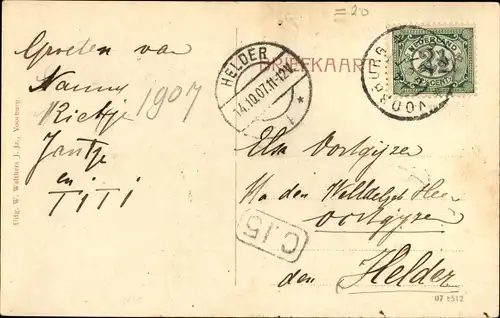 =20
BRIEFKAART
HELDER
14.10.07.11-12V
VOORBURG
NEDERLAND
2½
CENT
Groeten van
Nanny
Rietje 1907
Jantje
en
TITI
Uitg. W. Walthers J. Jz., Voorburg.
C 15
Aan
den Heer
Oortgijsen
den Helder
07 1512